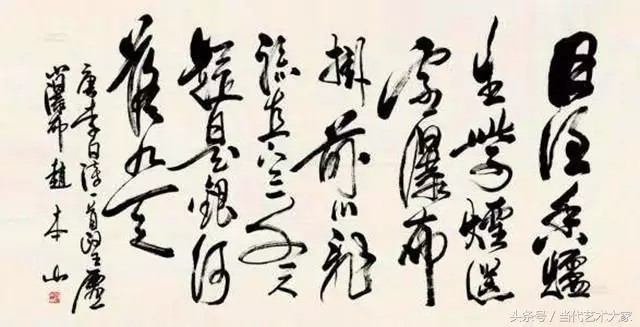 日照香爐
生紫煙遥
看瀑布
掛前川飛
流直下三千尺
疑是銀河
落九天
唐李白詩一首望廬
山瀑布 趙本山
头条号 / 当代艺术大家